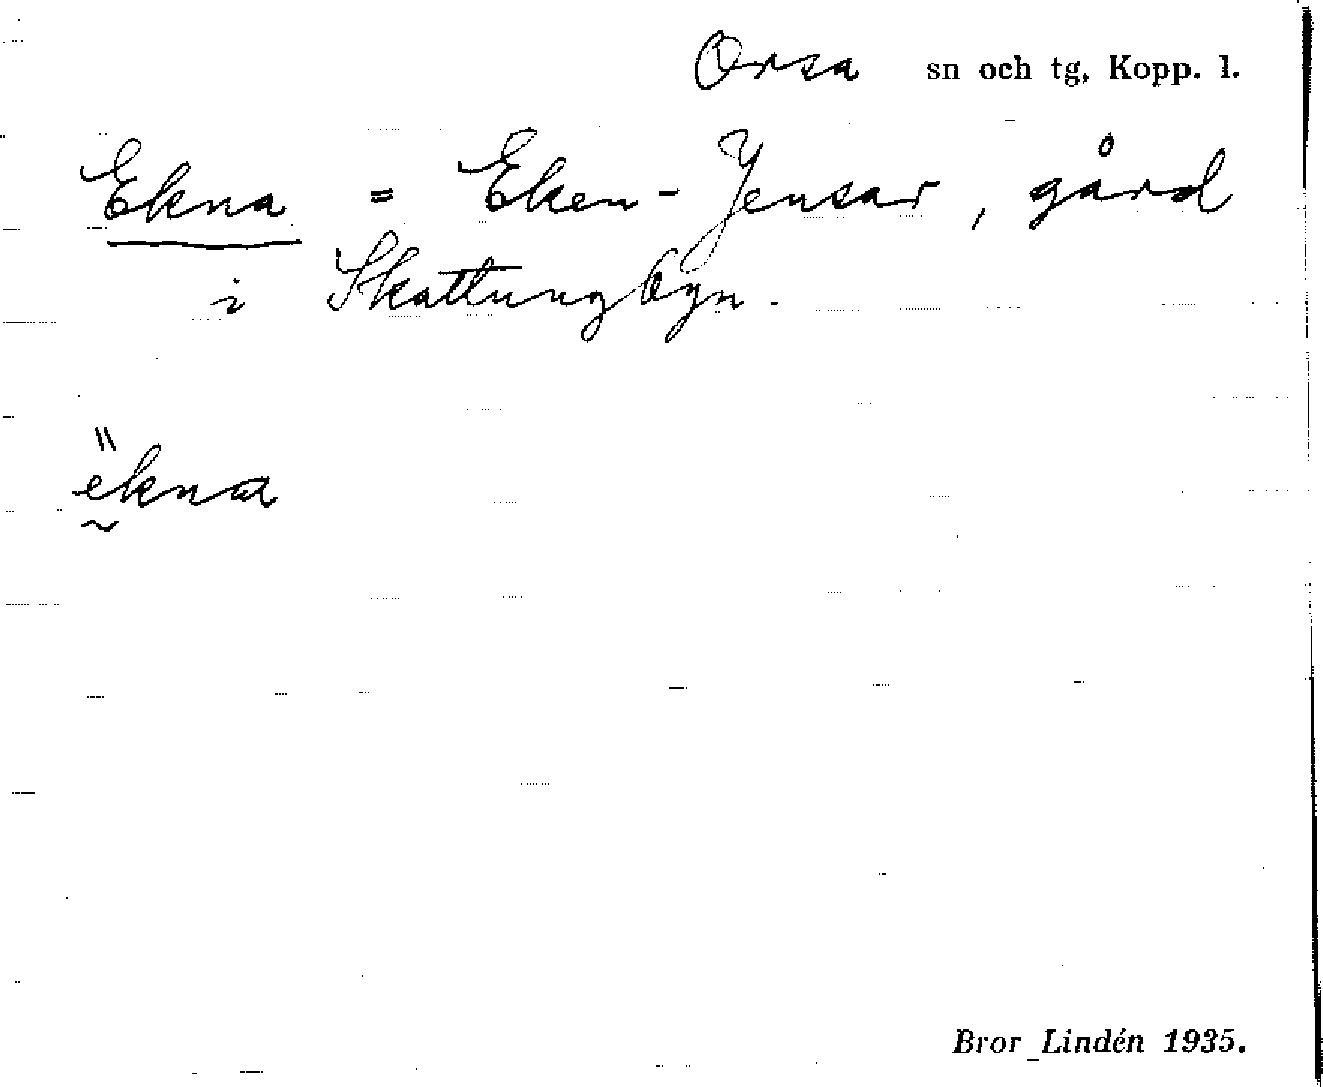 Orsa sn och tg, Kopp. l.
Ekna = Eken-Jensar, gård
i Skattungbyn.
ekna
Bror Lindén 1935.